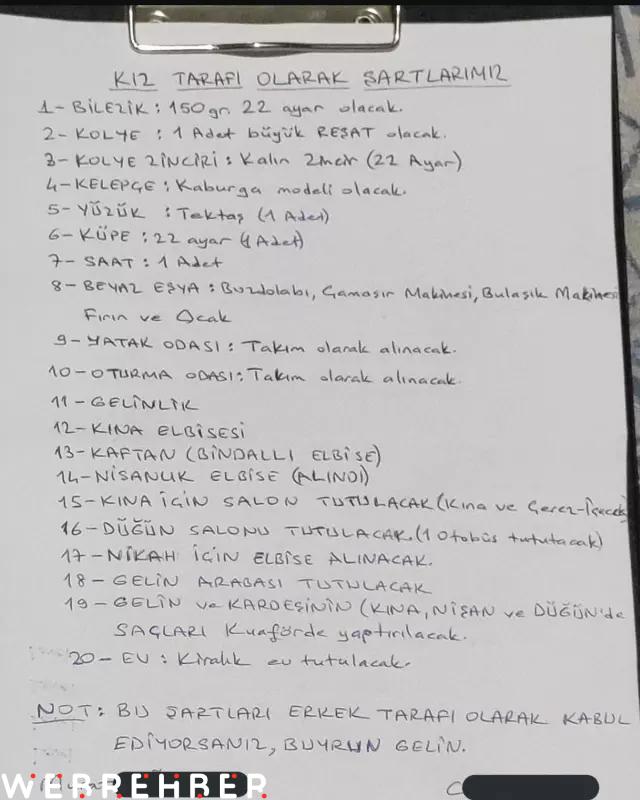 KIZ TARAFI OLARAK ŞARTLARIMIZ
1- BİLEZİK : 150gr. 22 ayar olacak.
2- KOLYE : 1 Adet büyük REŞAT olacak.
3- KOLYE ZİNCİRİ : Kalın 2mcir (22 Ayar)
4- KELEPÇE : Kaburga modeli olacak.
5- YÜZÜK : Tektaş (1 Adet)
6- KÜPE : 22 ayar (1 Adet)
7- SAAT : 1 Adet
8- BEYAZ EŞYA : Buzdolabı, Çamaşır Makinesi, Bulaşık Makinesi
Fırın ve Ocak
9- YATAK ODASI : Takım olarak alınacak.
10- OTURMA ODASI : Takım olarak alınacak.
11- GELİNLİK
12- KINA ELBİSESİ
13- KAFTAN (BİNDALLI ELBİSE)
14- NİŞANLIK ELBİSE (ALINDI)
15- KINA İÇİN SALON TUTULACAK (Kına ve Çerez-İçecek)
16- DÜĞÜN SALONU TUTULACAK. (1 Otobüs tutulacak)
17- NİKAH İÇİN ELBİSE ALINACAK.
18- GELİN ARABASI TUTULACAK
19- GELİN ve KARDEŞİNİN (KINA, NİŞAN ve DÜĞÜN'de
SAÇLARI Kuaförde yaptırılacak.
20- EV : Kiralık ev tutulacak.
NOT: BU ŞARTLARI ERKEK TARAFI OLARAK KABUL
EDİYORSANIZ, BUYRUN GELİN.
WEBREHBER
C